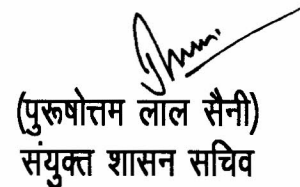 (पुरूषोत्तम लाल सैनी)
संयुक्त शासन सचिव